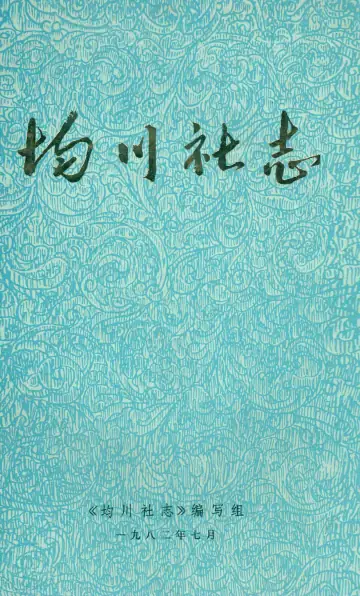 均川社志
《均川社志》编写组
一九八二年七月